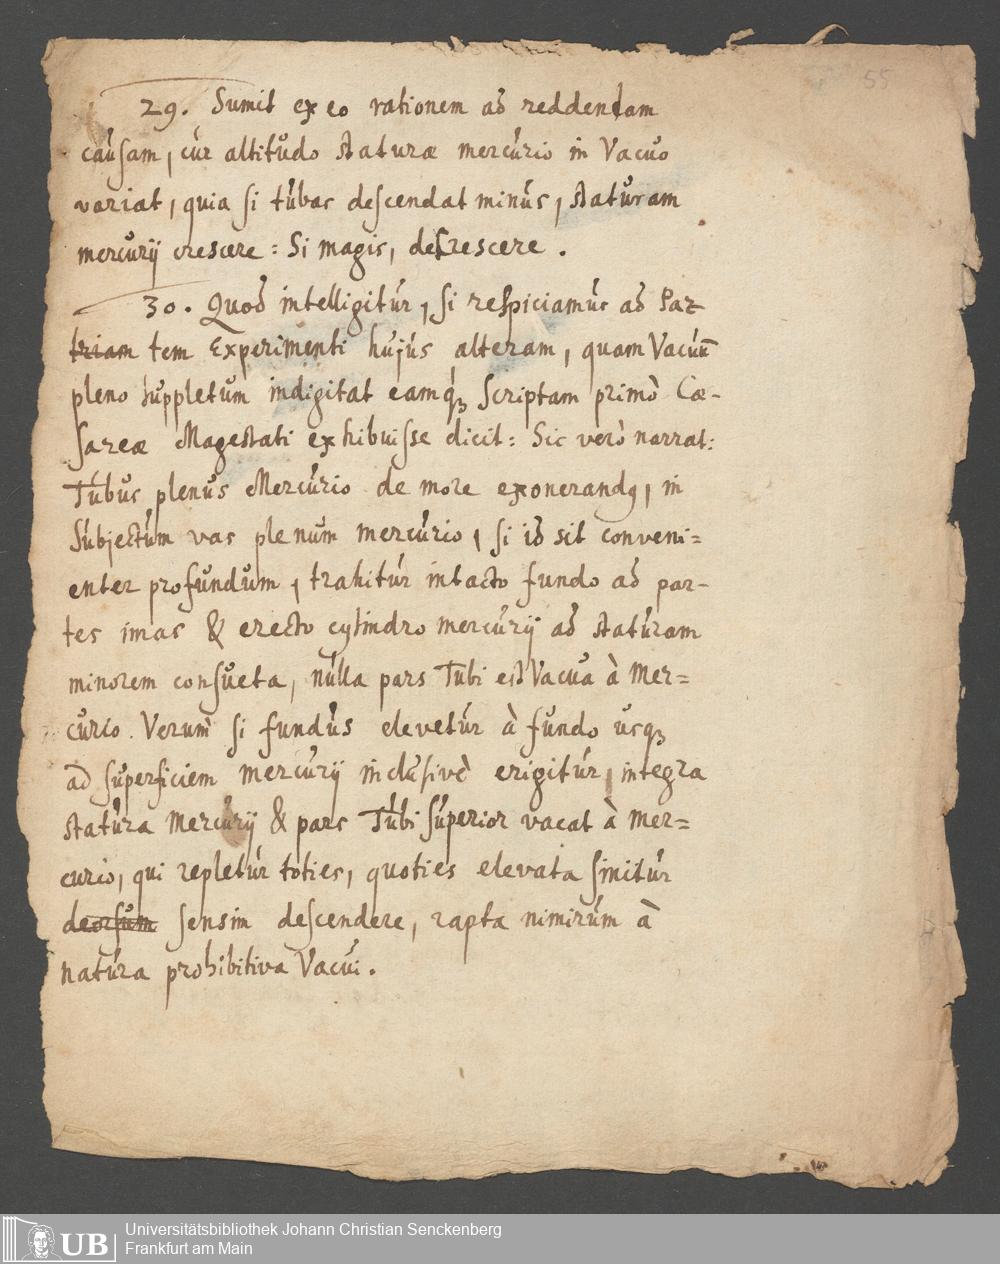 55
29. Sumit ex eo rationem ad reddendam
causam, cur altitudo staturæ mercurio in Vacuo
variat, quia si tubus descendat minus, staturam
mercurij crescere: Si magis, decrescere.
30. Quod intelligitur, si respiciamus ad Par
triam tem Experimenti hujus alteram, quam Vacuū
pleno suppletum indigitat eamq₃ scriptam primò Cæ-
sareæ Magestati exhibuisse dicit: Sic verò narrat:
Tubus plenus Mercurio de more exonerandꝰ, in
subjectum vas plenum mercurio, si id sit conveni=
enter profundum, trahitur intacto fundo ad par-
tes imas & erecto cylindro mercurij ad staturam
minorem consueta, nulla pars Tubi est Vacua à Mer=
curio. Verum si fundus elevetur à fundo usq₃
ad superficiem mercurij inclusivè erigitur, integra
statura Mercurij & pars Tubi superior vacat à Mer=
curio, qui repletur toties, quoties elevata sinitur
deorsum sensim descendere, rapta nimirum à
natura prohibitiva Vacui.
UB
Universitätsbibliothek Johann Christian Senckenberg
Frankfurt am Main